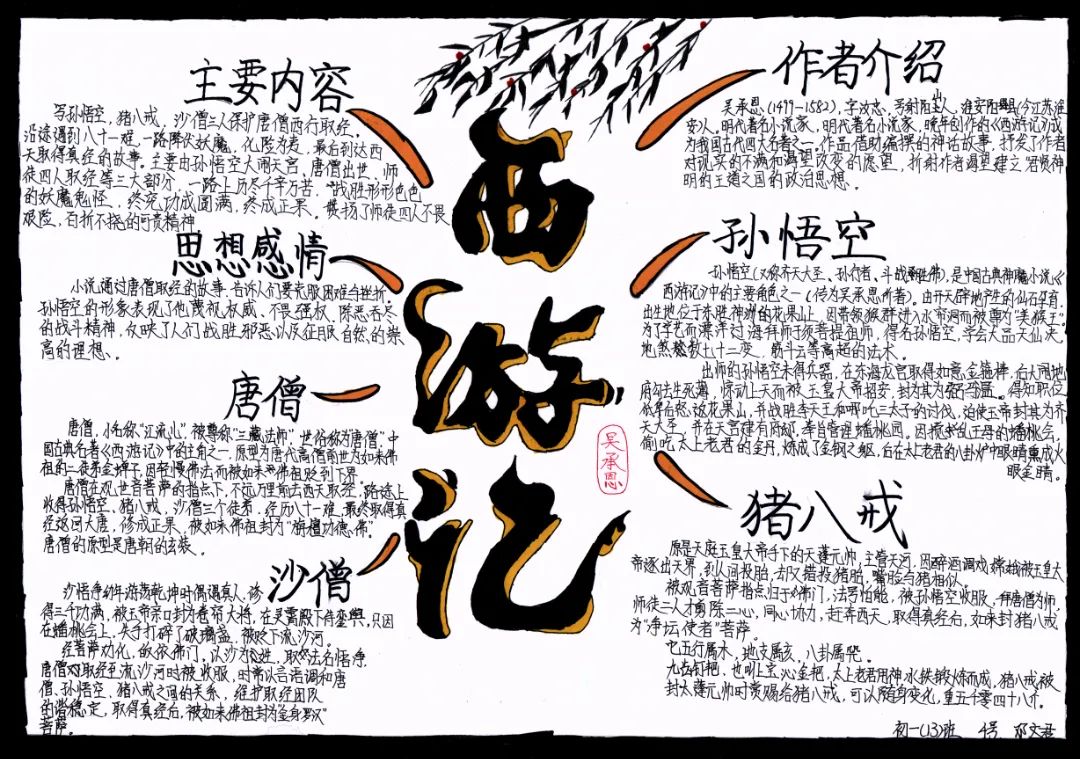 西游记
吴承恩
主要内容
写孙悟空,猪八戒,沙僧三人保护唐僧西行取经,
沿途遇到八十一难,一路降伏妖魔,化险为夷,最后到达西
天取得真经的故事。主要由孙悟空大闹天宫,唐僧出世、师
徒四人取经等三大部分,一路上历尽千辛万苦,战胜形形色色
的妖魔鬼怪,终究功成圆满,终成正果。赞扬了师徒四人不畏
艰险,百折不挠的可贵精神
思想感情
小说通过唐僧取经的故事,告诉人们要克服困难与挫折。
孙悟空的形象表现了他蔑视权威、不畏强权、除恶务尽
的战斗精神,反映了人们战胜邪恶以及征服自然的崇
高的理想、。
唐僧
唐僧,小名称"江流儿",被尊称"三藏法师",世俗称为"唐僧"中
国古典名著《西游记》中的主角之一,原型为唐代高僧前世为如来佛
祖的二徒弟金蝉子,因轻慢佛法而被如来佛祖贬到下界
唐僧在观世音菩萨的指点下,不远万里前去西天取经,路途上
收得孙悟空,猪八戒,沙僧三个徒弟,经历八十一难,最终取得真
经返回大唐,修成正果,被如来佛祖封为"旃檀功德佛"
唐僧的原型是唐朝的玄奘。
沙僧
沙悟净幼年游荡乾坤时偶遇真人,修
得三千功满,被玉帝亲口封为卷帘大将,在灵霄殿下侍銮舆,只因
在蟠桃会上,失手打碎了玻璃盏,被贬下流沙河。
经菩萨劝化,皈依佛门,以沙为姓,取法名悟净,
唐僧取经至流沙河时被收服,时常以言语调和唐
僧、孙悟空、猪八戒之间的关系,维护取经团队
的稳定,取得真经后,被如来佛祖封为"金身罗汉"
菩萨。
作者介绍
吴承恩(1499-1582),字汝忠,号射阳山人,淮安(今江苏淮
安)人。明代著名小说家,明代著名小说家,晚年创作的《西游记》成
为我国古代四大名著之一。作品借助编撰的神话故事,抒发了作者
对现实的不满和渴望改变的愿望,折射作者渴望建立"君贤神
明"的王道之国的政治思想。
孙悟空
孙悟空(又称齐天大圣、孙行者、斗战胜佛),是中国古典神魔小说《
西游记》中的主要角色之一(传为吴承恩所著)。由开天辟地产生的仙石孕育,
出生地位于东胜神洲的花果山上,因带领猴群进入水帘洞而被尊为"美猴王"
为了学艺而漂洋过海拜师于须菩提祖师,得名孙悟空,学会大品天仙决、
地煞数七十二变、筋斗云等高超的法术。
出师的孙悟空未得兵器,在东海龙宫取得如意金箍棒,后大闹地
府勾去生死簿,惊动上天而被玉皇大帝招安,封为弼马温。得知职位
低卑后怒返花果山,并战胜李天王和哪吒三太子的讨伐,迫使玉帝封其为齐
天大圣,并在天宫建有府邸,奉旨管理蟠桃园。因搅乱王母的蟠桃会,
偷吃太上老君的金丹,炼成了金钢之躯,后在太上老君的八卦炉中眼睛熏成火
眼金睛。
猪八戒
原是天庭玉皇大帝手下的天蓬元帅,主管天河,因醉酒调戏嫦娥被玉皇大
帝逐出天界,到人间投胎,却又错投猪胎,嘴脸与猪相似。
被观音菩萨指点归于佛门,法号悟能,被孙悟空收服,拜唐僧为师,
师徒二人扫除二心,同心协力,赶奔西天,取得真经后,如来封猪八戒
为"净坛使者"菩萨。
它五行属木,地支属亥,八卦属
九齿钉耙,也叫上宝沁金耙,太上老君用神冰铁锻炼而成,猪八戒被
封太蓬元帅时赏赐给猪八戒,可以随身变化,重五千零四十八斤。
初一(13)班 4号